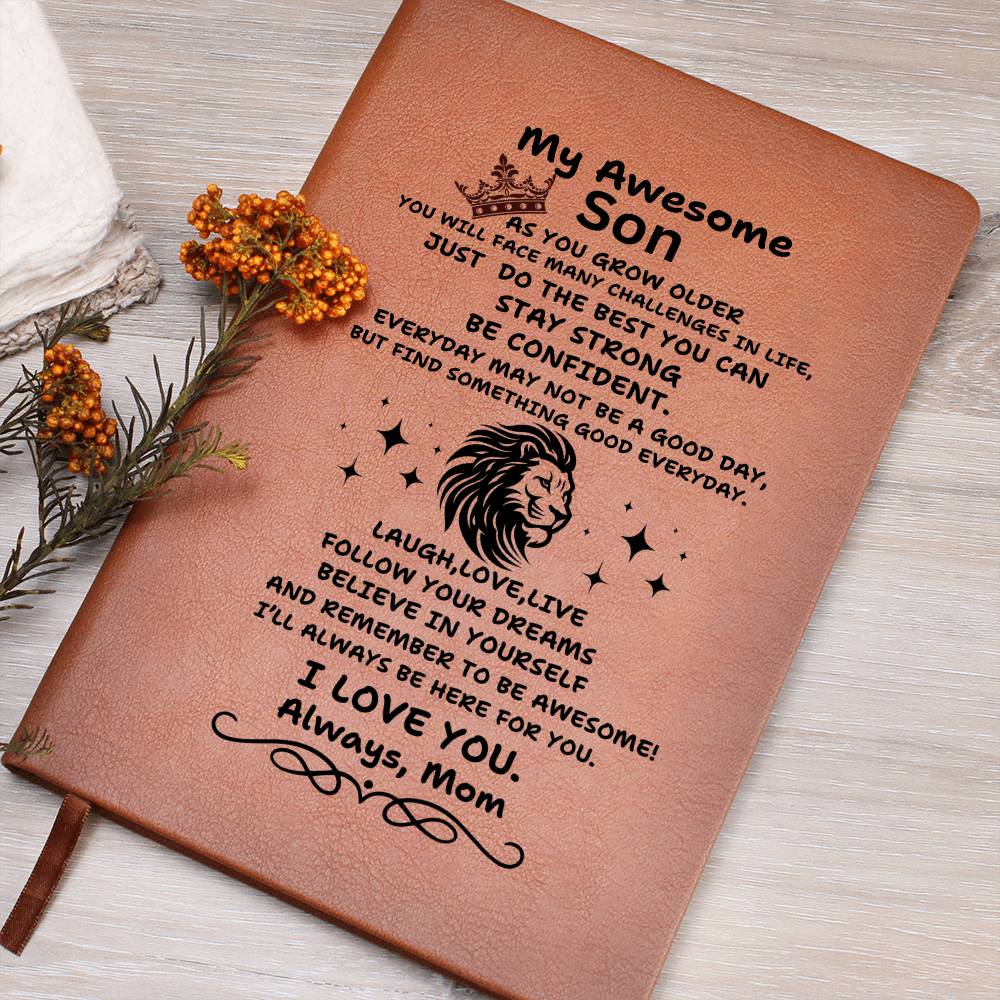 My Awesome
Son
AS YOU GROW OLDER
YOU WILL FACE MANY CHALLENGES IN LIFE,
JUST DO THE BEST YOU CAN
STAY STRONG
BE CONFIDENT.
EVERYDAY MAY NOT BE A GOOD DAY,
BUT FIND SOMETHING GOOD EVERYDAY.
LAUGH,LOVE,LIVE
FOLLOW YOUR DREAMS
BELIEVE IN YOURSELF
AND REMEMBER TO BE AWESOME!
I'LL ALWAYS BE HERE FOR YOU.
I LOVE YOU.
Always, Mom